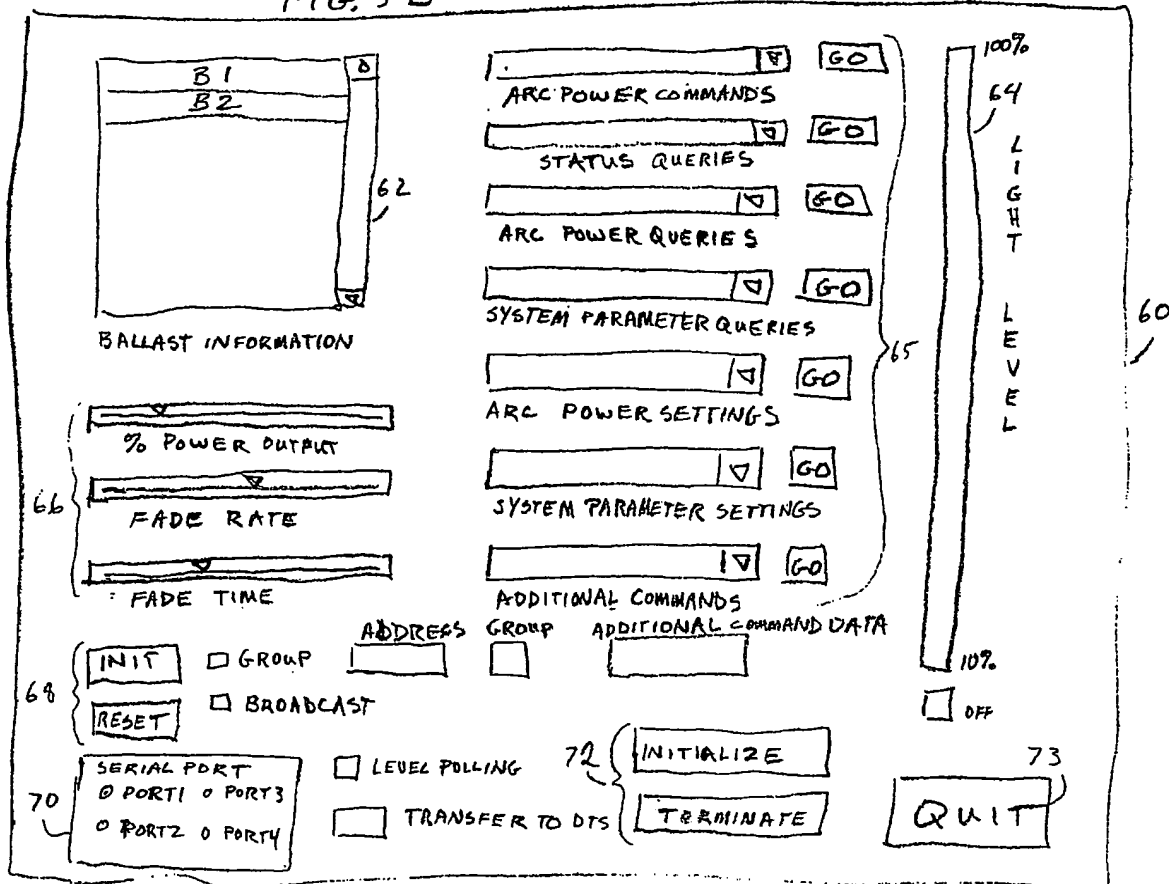 B1
B2
62
BALLAST INFORMATION
GO
ARC POWER COMMANDS
GO
STATUS QUERIES
GO
ARC POWER QUERIES
GO
SYSTEM PARAMETER QUERIES
GO
ARC POWER SETTINGS
GO
SYSTEM PARAMETER SETTINGS
GO
ADDITIONAL COMMANDS
65
100%
64
LIGHT LEVEL
60
10%
OFF
66
% POWER OUTPUT
FADE RATE
FADE TIME
ADDRESS GROUP ADDITIONAL COMMAND DATA
68
INIT GROUP
RESET BROADCAST
70
SERIAL PORT
PORT1 PORT3
PORT2 PORT4
LEVEL POLLING
TRANSFER TO DTS
72
INITIALIZE
TERMINATE
73
QUIT